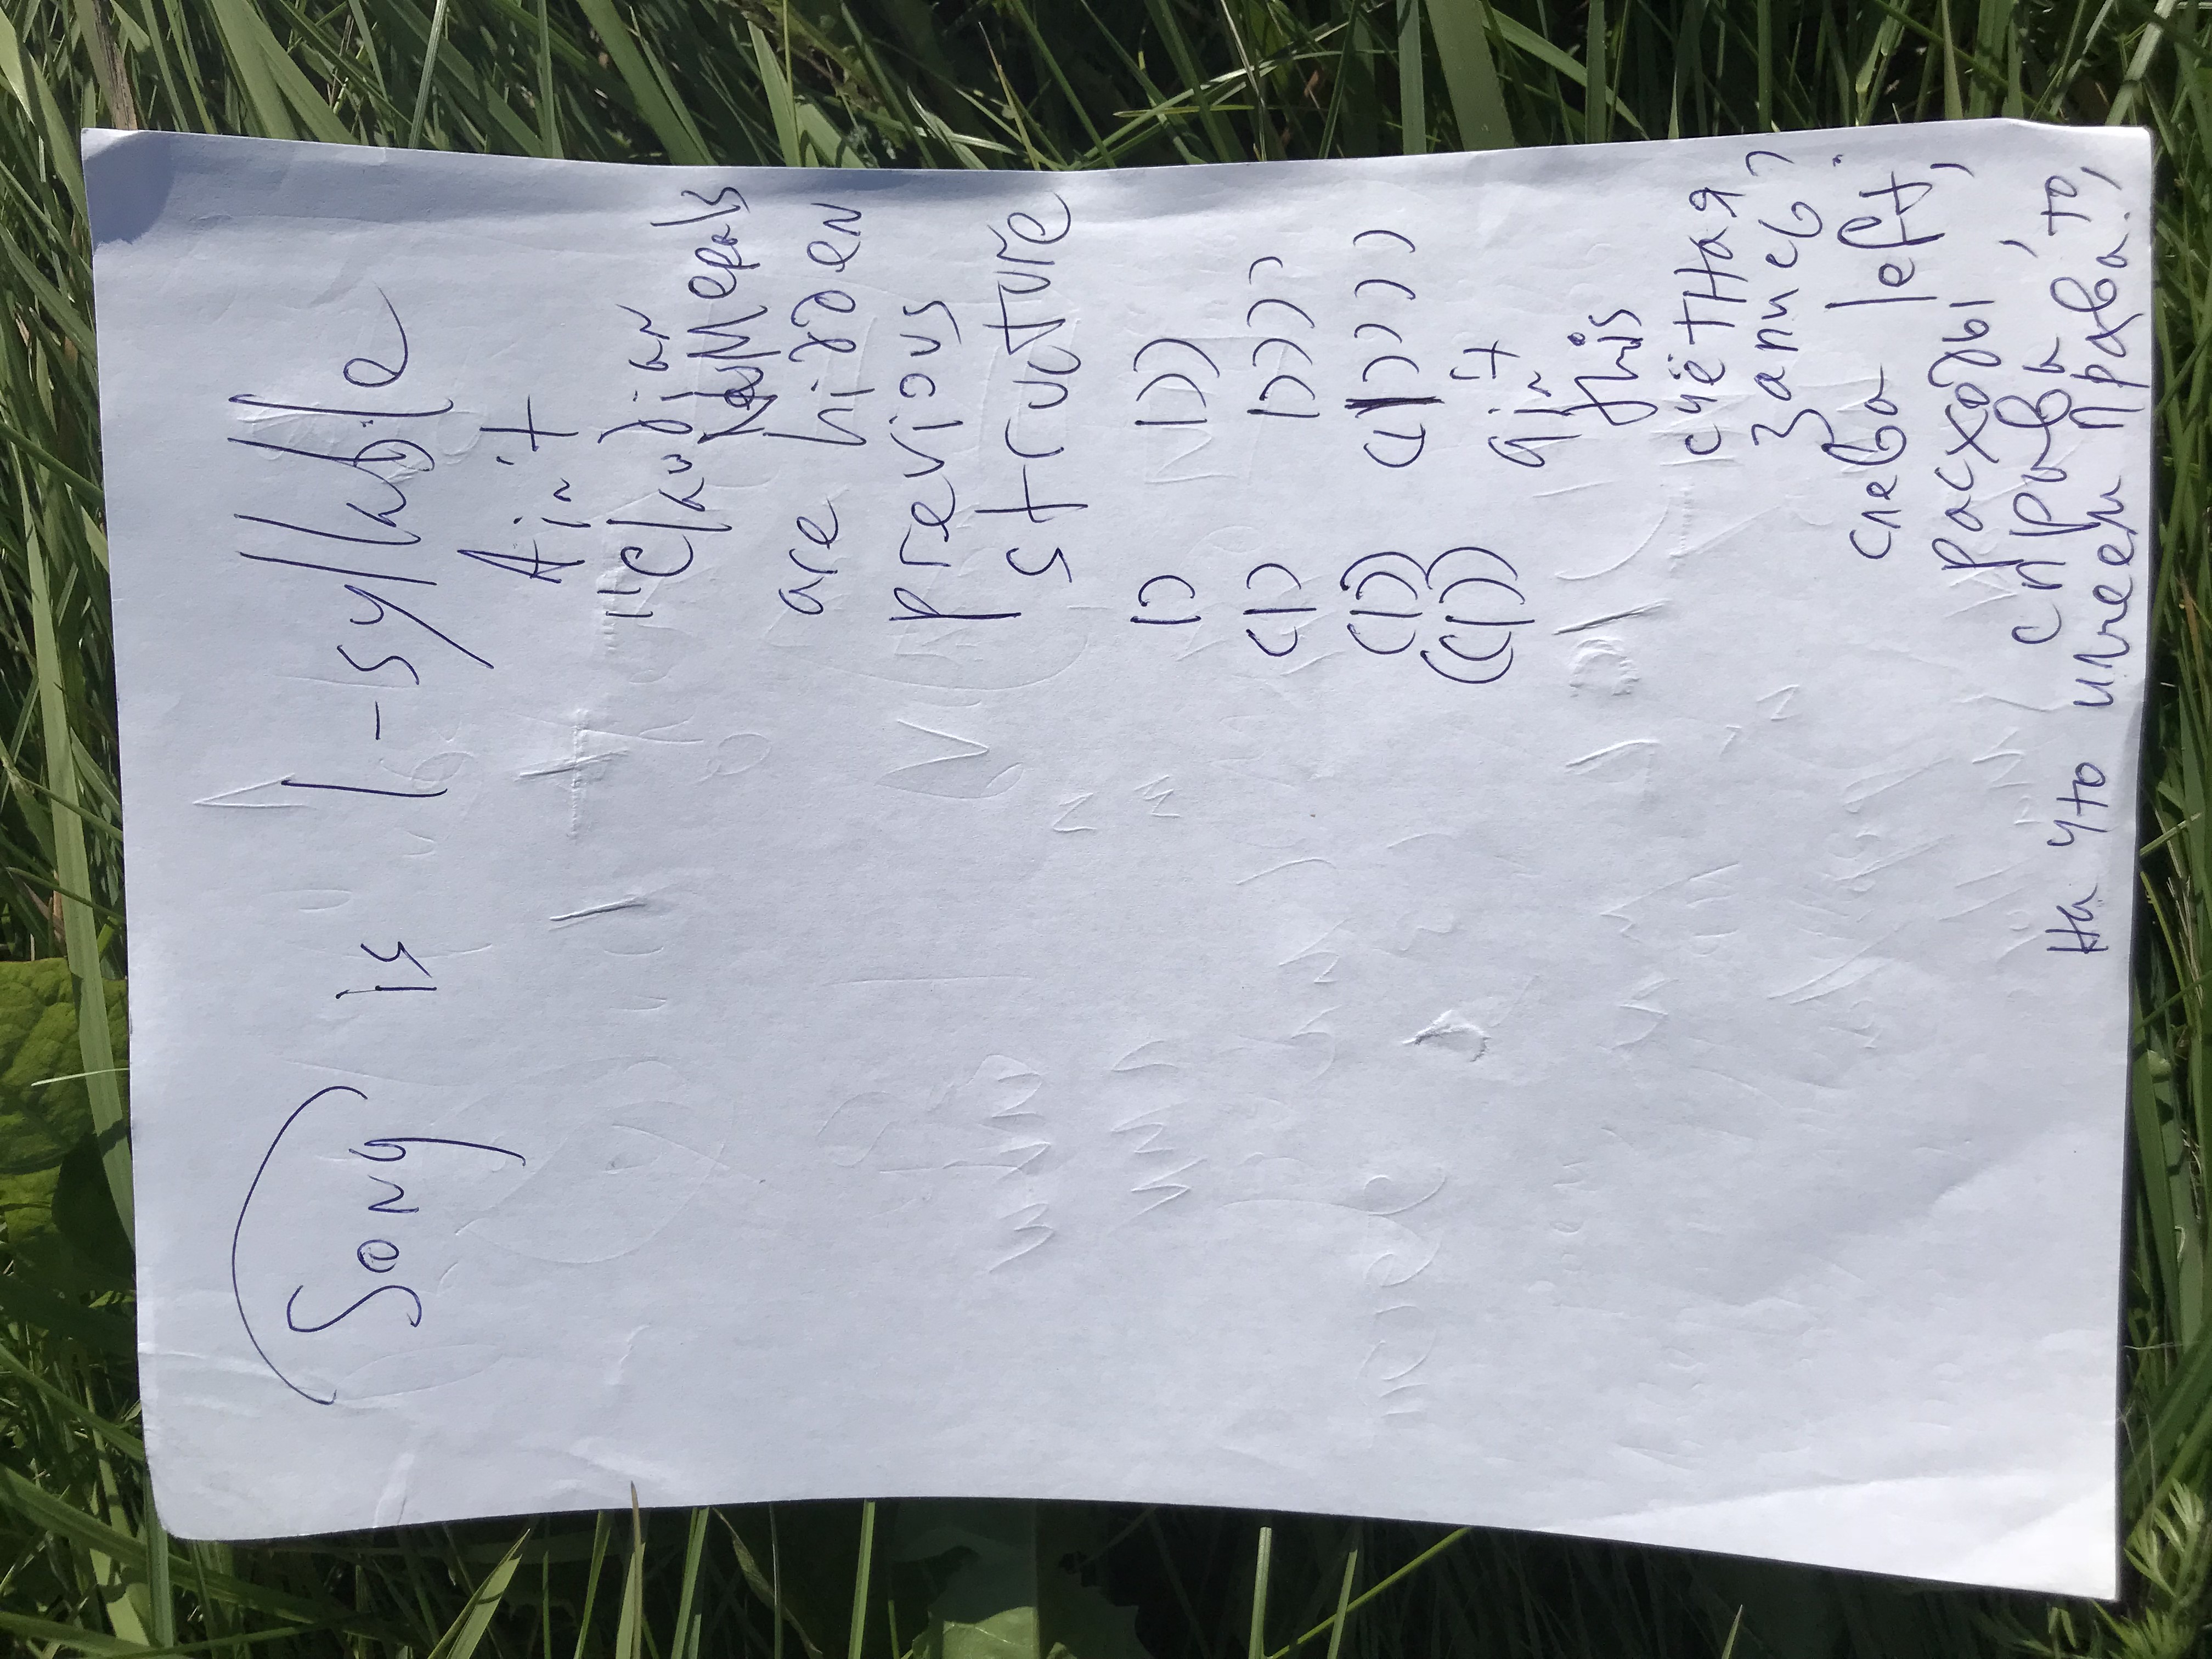 Song is 1-syllable
Ain't
"Claudian
NuMerals
are hidden
previous
structure
|) |))
(|) |))))
(|)) ((|)))))
((|))
ain't
this
счётная
запись?
слева left,
расходы,
справа, то,
на что имеем права.